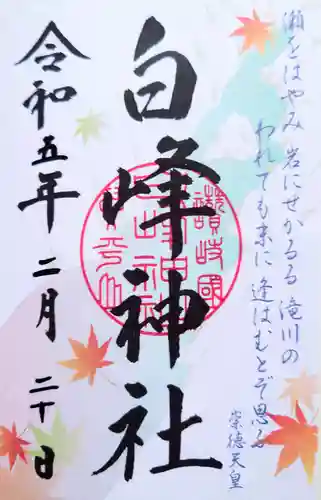 瀬をはやみ 岩にせかるる 滝川の
われても末に 逢はむとぞ思ふ
崇徳天皇
白峰神社
令和五年 二月 二十日
讃岐國